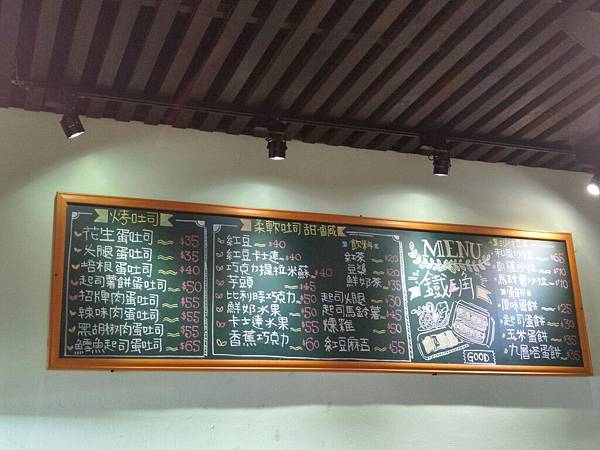 烤吐司
花生蛋吐司 $35
火腿蛋吐司 $35
培根蛋吐司 $40
起司薯餅蛋吐司 $50
招牌肉蛋吐司 $55
辣味肉蛋吐司 $55
黑胡椒肉蛋吐司 $55
鱈魚起司蛋吐司 $65
柔軟吐司 甜.鹹
紅豆 $40
紅豆卡士達 $40
巧克力提拉米蘇 $40
芋頭 $45
比利時巧克力 $50
鮮奶水果 $55
卡士達水果 $55
香蕉巧克力 $60
飲料
紅茶 $20
豆漿 $20
鮮奶茶 $35
起司火腿 $30
起司馬鈴薯 $45
燻雞 $50
紅豆麻吉 $55
MENU
鐵三角
GOOD
$65
$70
馬鈴薯沙拉 $70
蛋餅
原味蛋餅 $25
起司蛋餅 $30
玉米蛋餅 $35
九層塔蛋餅 $35